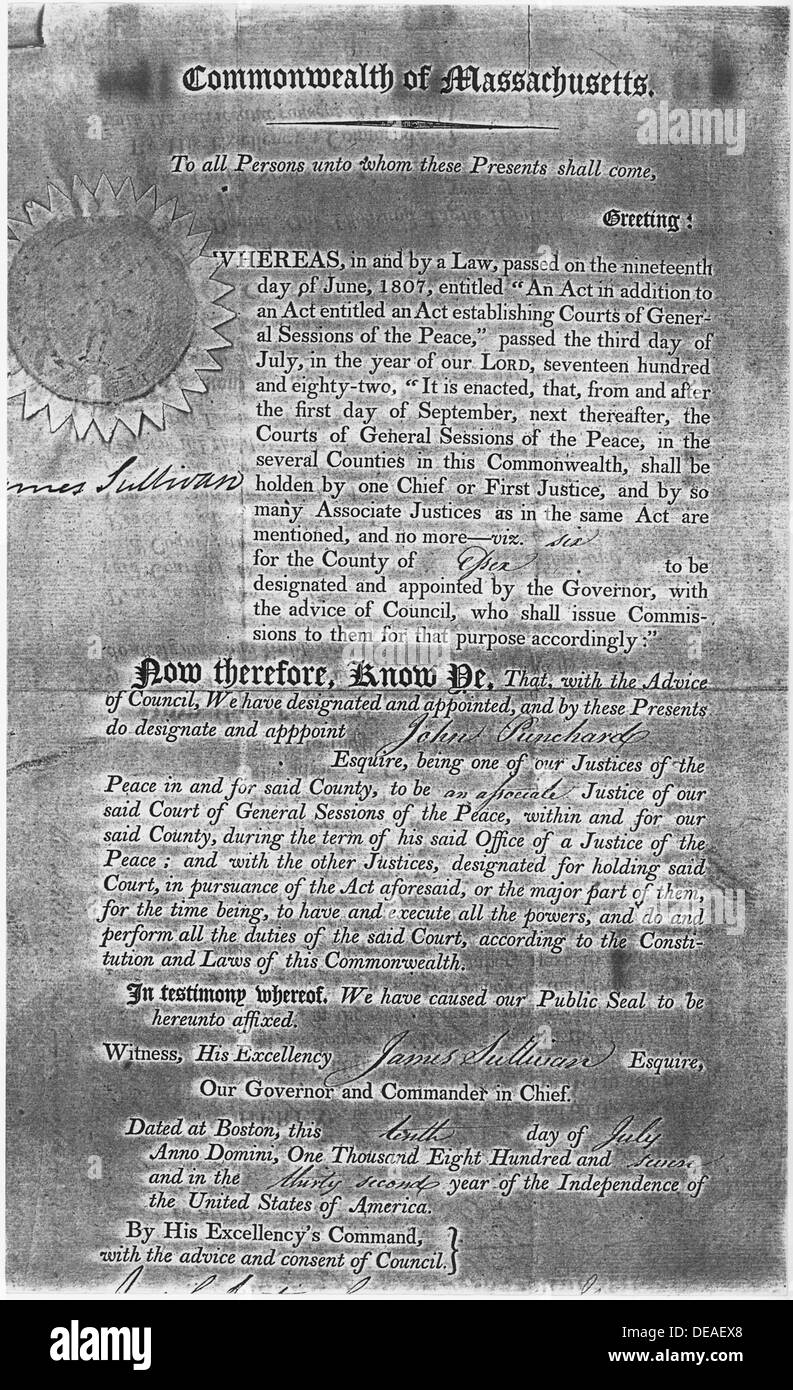 Commonwealth of Massachusetts.
To all Persons unto whom these Presents shall come,
Greeting:
WHEREAS, in and by a Law, passed on the nineteenth
day of June, 1807, entitled "An Act in addition to
an Act entitled an Act establishing Courts of Gener-
al Sessions of the Peace," passed the third day of
July, in the year of our LORD, seventeen hundred
and eighty-two, "It is enacted, that, from and after
the first day of September, next thereafter, the
Courts of General Sessions of the Peace, in the
several Counties in this Commonwealth, shall be
James Sullivan
holden by one Chief or First Justice, and by so
many Associate Justices as in the same Act are
mentioned, and no more—viz. six
for the County of Essex to be
designated and appointed by the Governor, with
the advice of Council, who shall issue Commis-
sions to them for that purpose accordingly:"
Now therefore, Know Ye, That, with the Advice
of Council, We have designated and appointed, and by these Presents
do designate and apppoint John Punchard
Esquire, being one of our Justices of the
Peace in and for said County, to be an associate Justice of our
said Court of General Sessions of the Peace, within and for our
said County, during the term of his said Office of a Justice of the
Peace; and with the other Justices, designated for holding said
Court, in pursuance of the Act aforesaid, or the major part of them,
for the time being, to have and execute all the powers, and do and
perform all the duties of the said Court, according to the Consti-
tution and Laws of this Commonwealth.
In testimony whereof, We have caused our Public Seal to be
hereunto affixed.
Witness, His Excellency James Sullivan Esquire,
Our Governor and Commander in Chief.
Dated at Boston, this tenth day of July
Anno Domini, One Thousand Eight Hundred and seven
and in the thirty second year of the Independence of
the United States of America.
By His Excellency's Command,
with the advice and consent of Council.
alamy
Image ID: DEAEX8
www.alamy.com